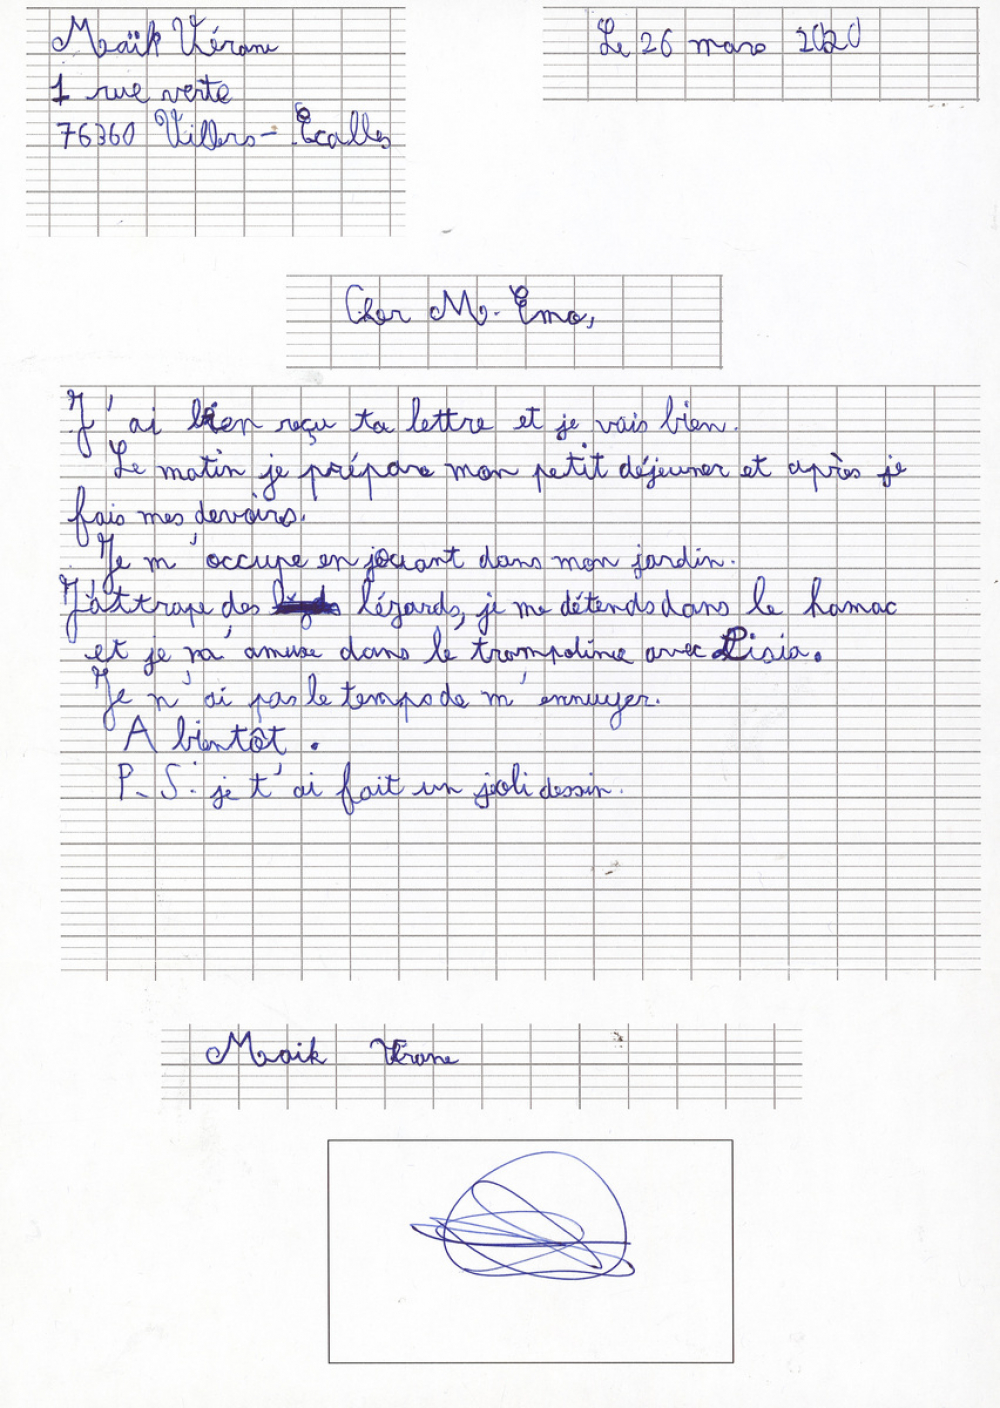 Maïk Vérane
Le 26 mars 2020
1 rue verte
76360 Villers-Ecalles
Cher M. Emo,
J'ai bien reçu ta lettre et je vais bien.
Le matin je prépare mon petit déjeuner et après je
fais mes devoirs.
Je m'occupe en jouant dans mon jardin.
J'attrape des lézards, je me détends dans le hamac
et je m'amuse dans le trampoline avec Lisia.
Je n'ai pas le temps de m'ennuyer.
A bientôt.
P.S. je t'ai fait un joli dessin.
Maik Vérane